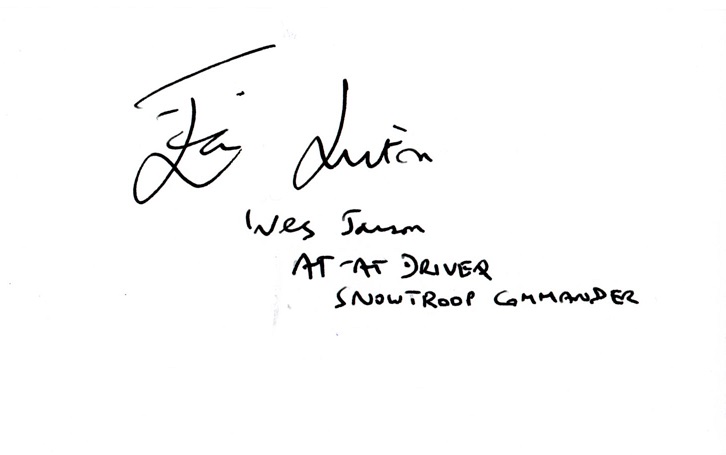 Wes Janson
AT-AT DRIVER
SNOWTROOP COMMANDER